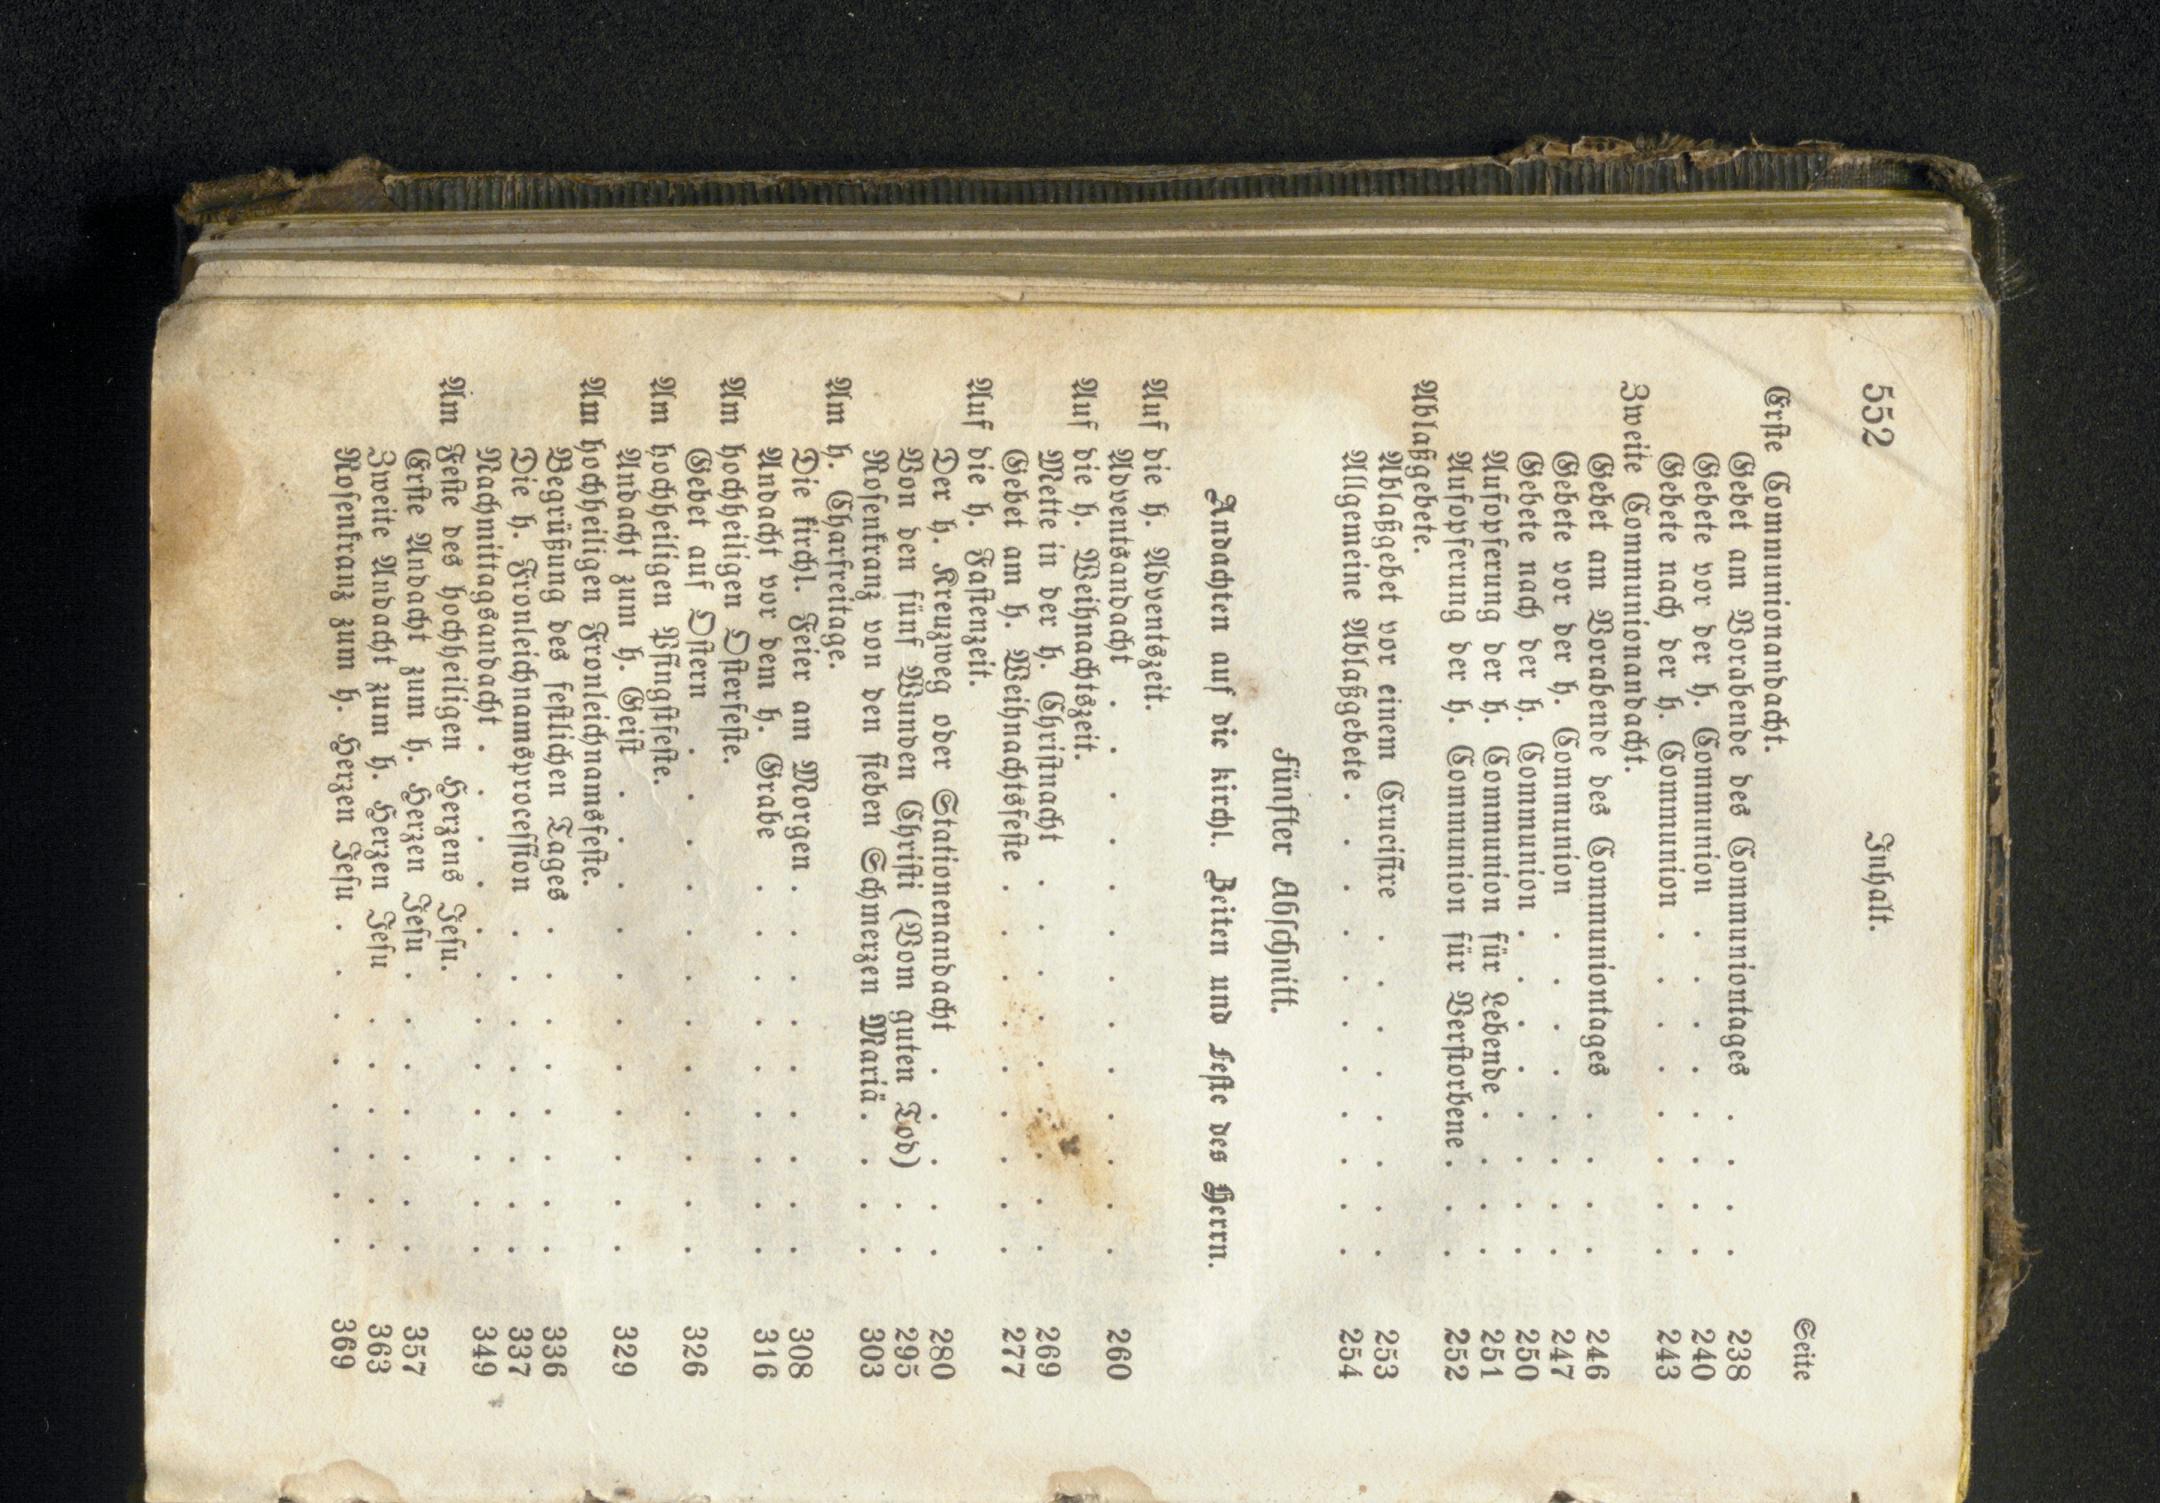 552 Inhalt.
Seite
Erste Communionandacht.
Gebet am Vorabende des Communiontages . . . . 238
Gebete vor der h. Communion . . . . . . . . 240
Gebete nach der h. Communion . . . . . . . . 243
Zweite Communionandacht.
Gebet am Vorabende des Communiontages . . . . 246
Gebete vor der h. Communion . . . . . . . . 247
Gebete nach der h. Communion . . . . . . . . 250
Aufopferung der h. Communion für Lebende . . . . 251
Aufopferung der h. Communion für Verstorbene . . . 252
Ablaßgebete.
Ablaßgebet vor einem Crucifixe . . . . . . . . 253
Allgemeine Ablaßgebete . . . . . . . . . . . 254
Fünfter Abschnitt.
Andachten auf die kirchl. Zeiten und Feste des Herrn.
Auf die h. Adventszeit.
Adventsandacht . . . . . . . . . . . . . 260
Auf die h. Weihnachtszeit.
Mette in der h. Christnacht . . . . . . . . . 269
Gebet am h. Weihnachtsfeste . . . . . . . . . 277
Auf die h. Fastenzeit.
Der h. Kreuzweg oder Stationenandacht . . . . . 280
Von den fünf Wunden Christi (Vom guten Tod) . . 295
Rosenkranz von den sieben Schmerzen Mariä . . . . 303
Am h. Charfreitage.
Die kirchl. Feier am Morgen . . . . . . . . . 308
Andacht vor dem h. Grabe . . . . . . . . . 316
Am hochheiligen Osterfeste.
Gebet auf Ostern . . . . . . . . . . . . 326
Am hochheiligen Pfingstfeste.
Andacht zum h. Geist . . . . . . . . . . . 329
Am hochheiligen Fronleichnamsfeste.
Begrüßung des festlichen Tages . . . . . . . . 336
Die h. Fronleichnamsprocession . . . . . . . . 337
Nachmittagsandacht . . . . . . . . . . . . 349
Am Feste des hochheiligen Herzens Jesu.
Erste Andacht zum h. Herzen Jesu . . . . . . . 357
Zweite Andacht zum h. Herzen Jesu . . . . . . 363
Rosenkranz zum h. Herzen Jesu . . . . . . . . 369